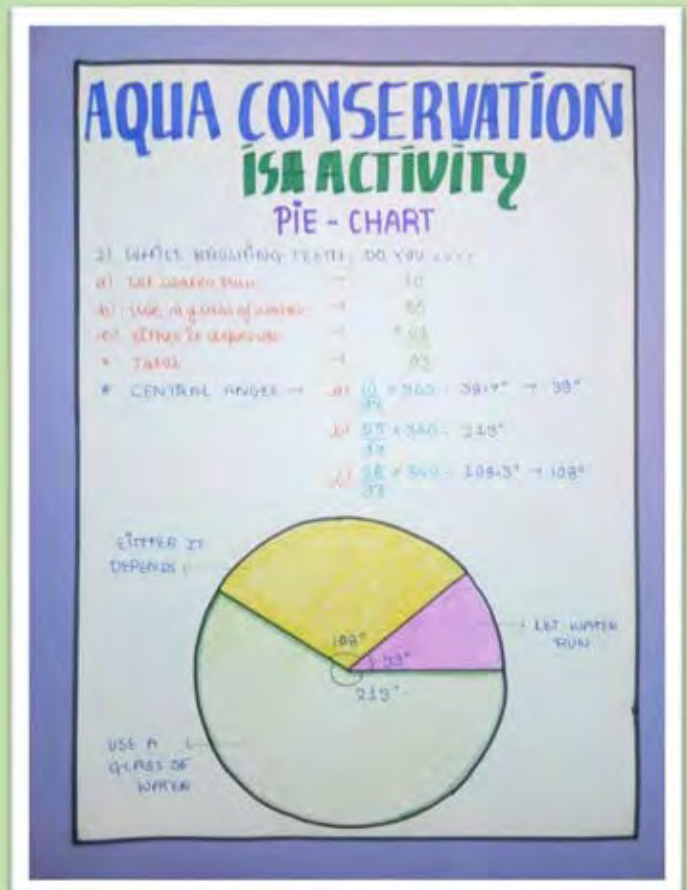 AQUA CONSERVATION
ISA ACTIVITY
PIE - CHART
2) WHILE BRUSHING TEETH, DO YOU ....
a) Let water run → 10
b) Use a glass of water → 55
c) Either it depends → + 28
* Total → 93
* CENTRAL ANGLE → a) 10/93 × 360 = 38.7° → 39°
b) 55/93 × 360 = 213°
c) 28/93 × 360 = 108.3° → 108°
EITHER IT
DEPENDS
LET WATER
RUN
108°
39°
213°
USE A
GLASS OF
WATER